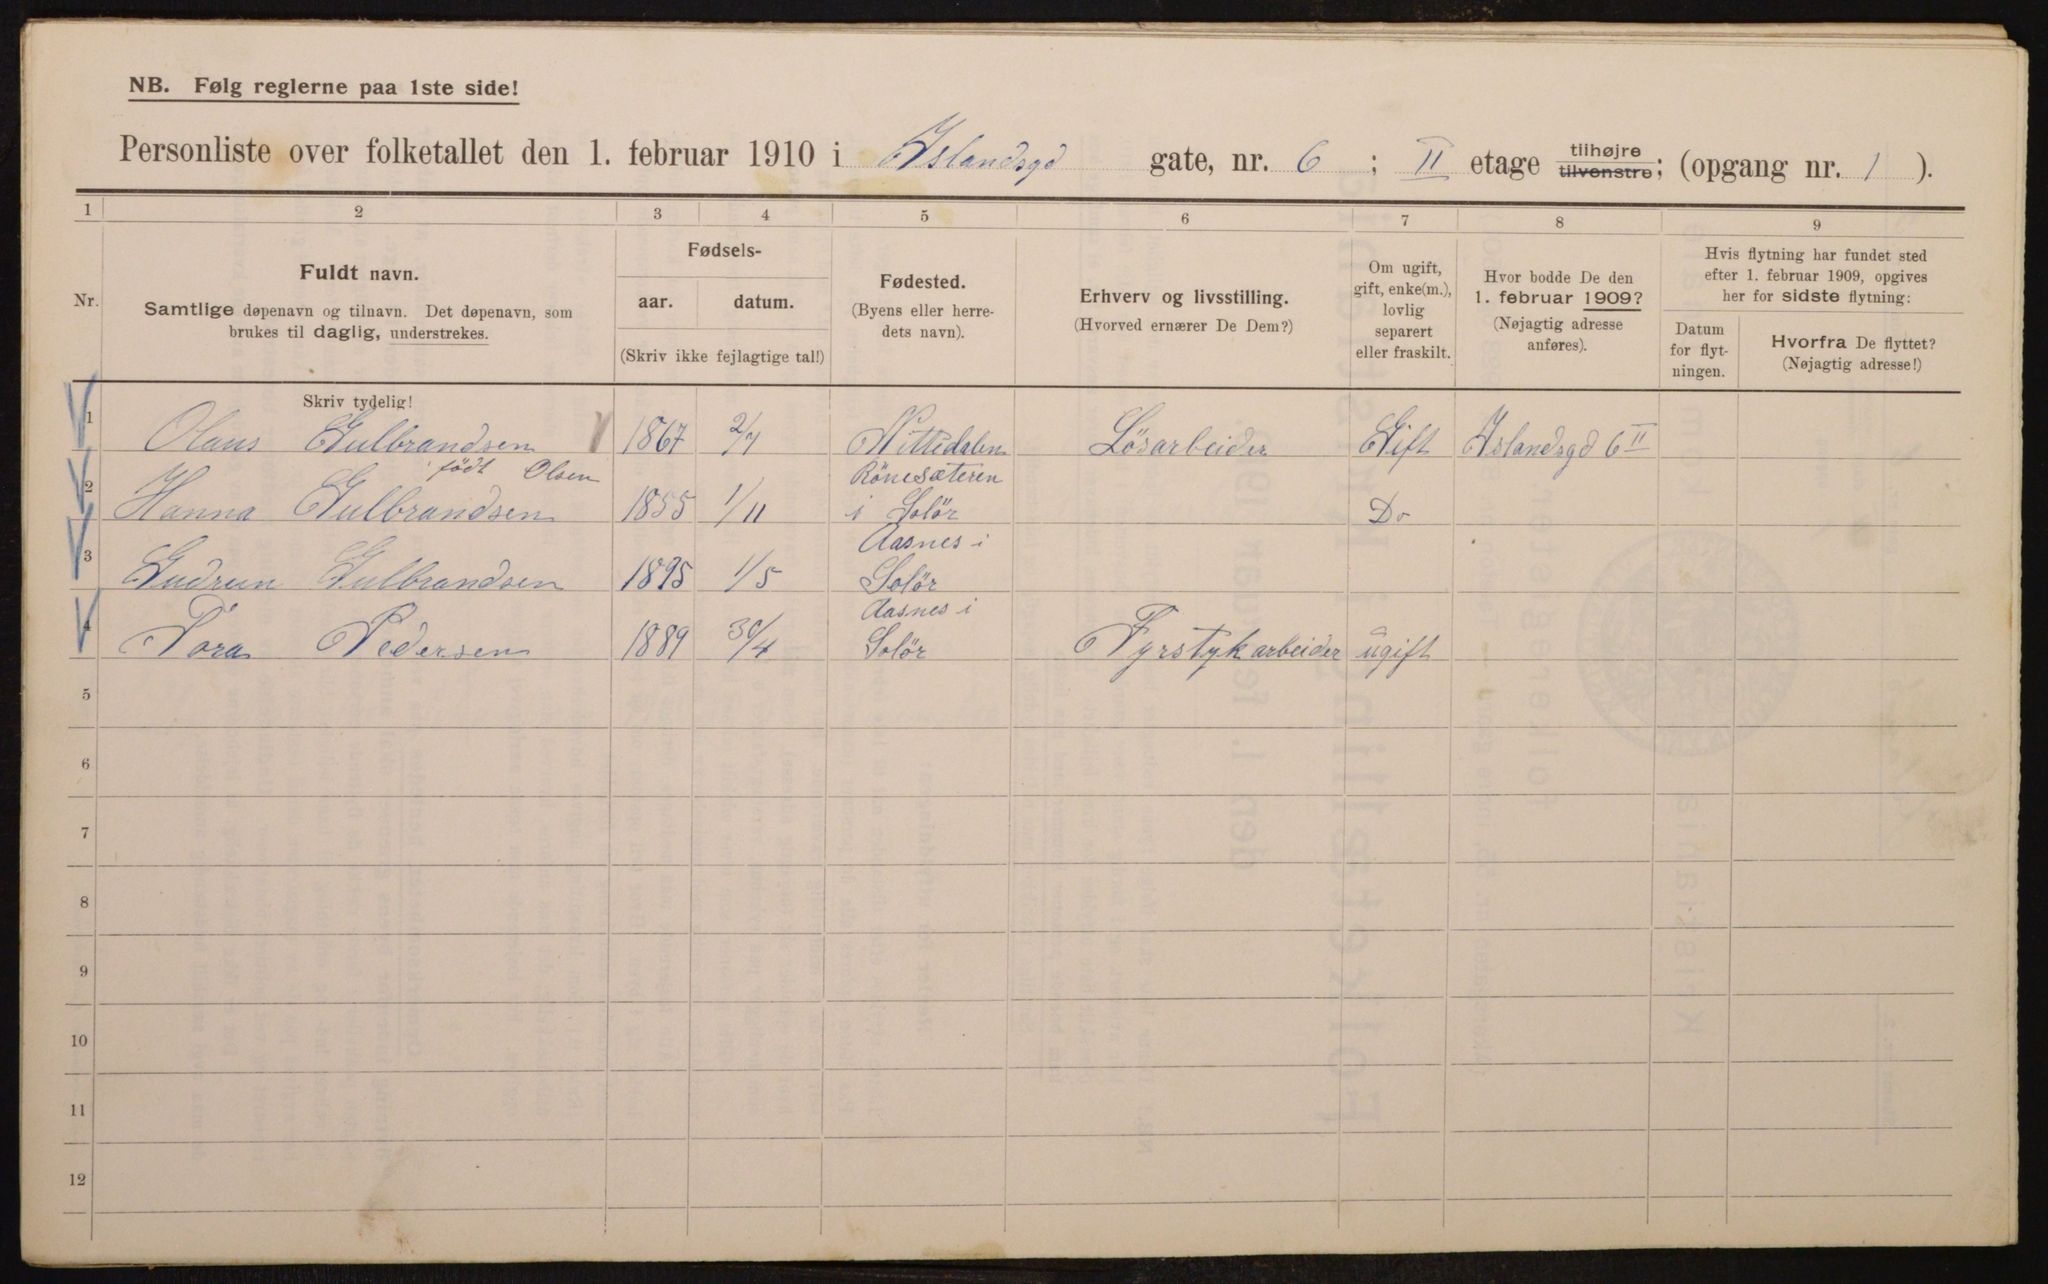 NB. Følg reglerne paa 1ste side!
Personliste over folketallet den 1. februar 1910 i Islandsgd gate, nr. 6 ; II etage tilhøjre tilvenstre; (opgang nr. 1 ).
1 2 3 4 5 6 7 8 9
Nr.
Fuldt navn.
Samtlige døpenavn og tilnavn. Det døpenavn, som
brukes til daglig, understrekes.
Fødsels-
aar. datum.
(Skriv ikke fejlagtige tal!)
Fødested.
(Byens eller herre-
dets navn).
Erhverv og livsstilling.
(Hvorved ernærer De Dem?)
Om ugift,
gift, enke(m.),
lovlig
separert
eller fraskilt.
Hvor bodde De den
1. februar 1909?
(Nøjagtig adresse
anføres).
Hvis flytning har fundet sted
efter 1. februar 1909, opgives
her for sidste flytning:
Datum
for flyt-
ningen.
Hvorfra De flyttet?
(Nøjagtig adresse!)
Skriv tydelig!
1 Olaus Gulbrandsen 1867 2/7 Nittedalen Lösarbeider Gift Islandsgd 6 II
født Olsen Rönesæteren
2 Hanna Gulbrandsen 1855 1/11 i Solör Do
Aasnes i
3 Gudrun Gulbrandsen 1895 1/5 Solör
Aasnes i
4 Tora Pedersen 1889 30/4 Solör Fyrstykarbeider ugift
5
6
7
8
9
10
11
12